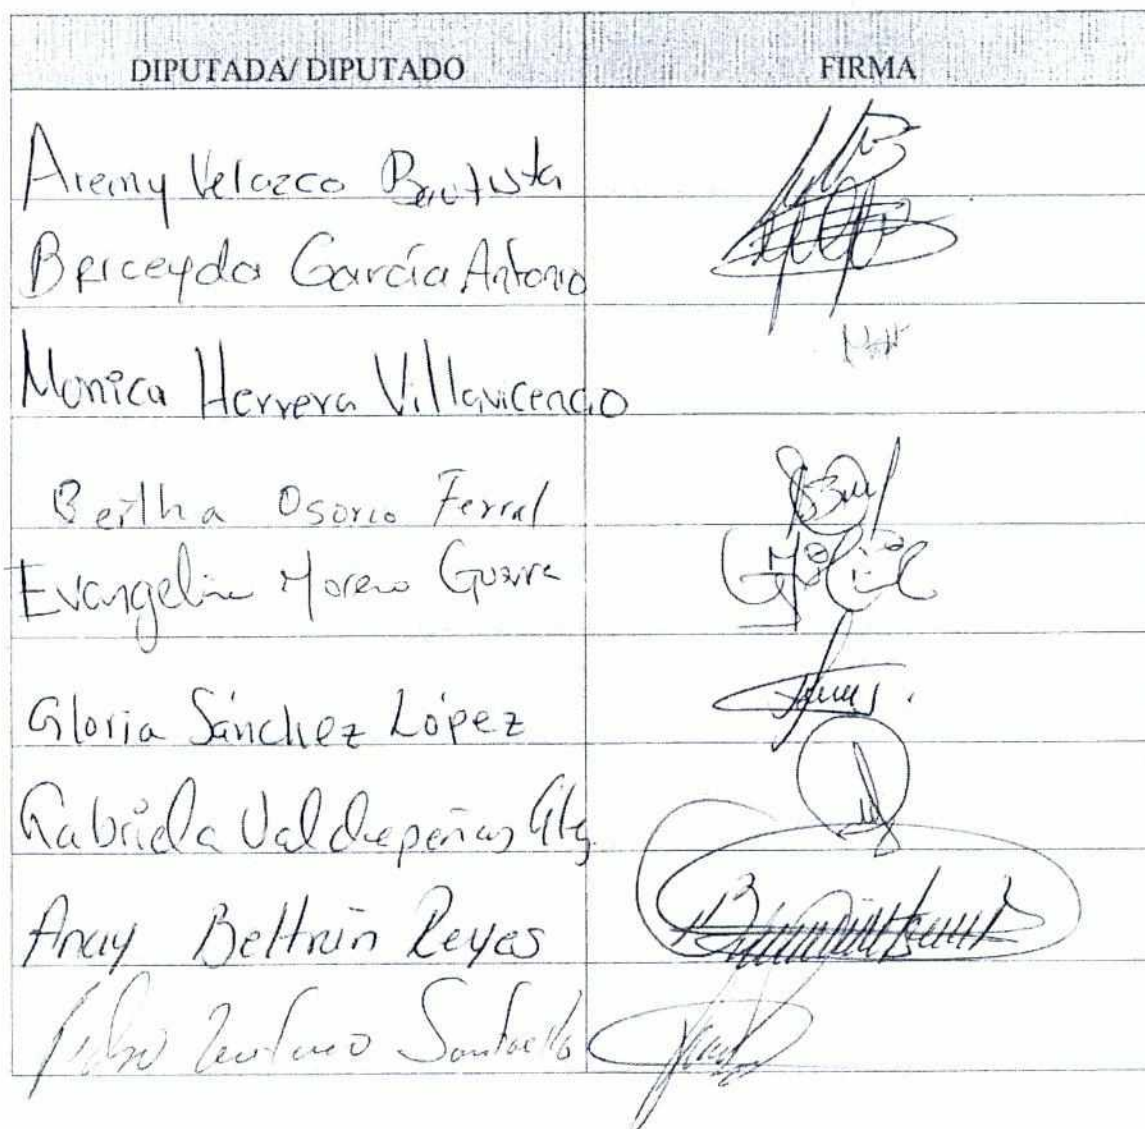 DIPUTADA/ DIPUTADO FIRMA
Aremy Velazco Bautista
Berceyda García Antonio
Monica Herrera Villavicencio
Bertha Osorio Ferral
Evangelina Moreno Guerra
Gloria Sánchez López
Gabriela Valdepeñas Glz
Anay Beltrán Reyes
Pedro